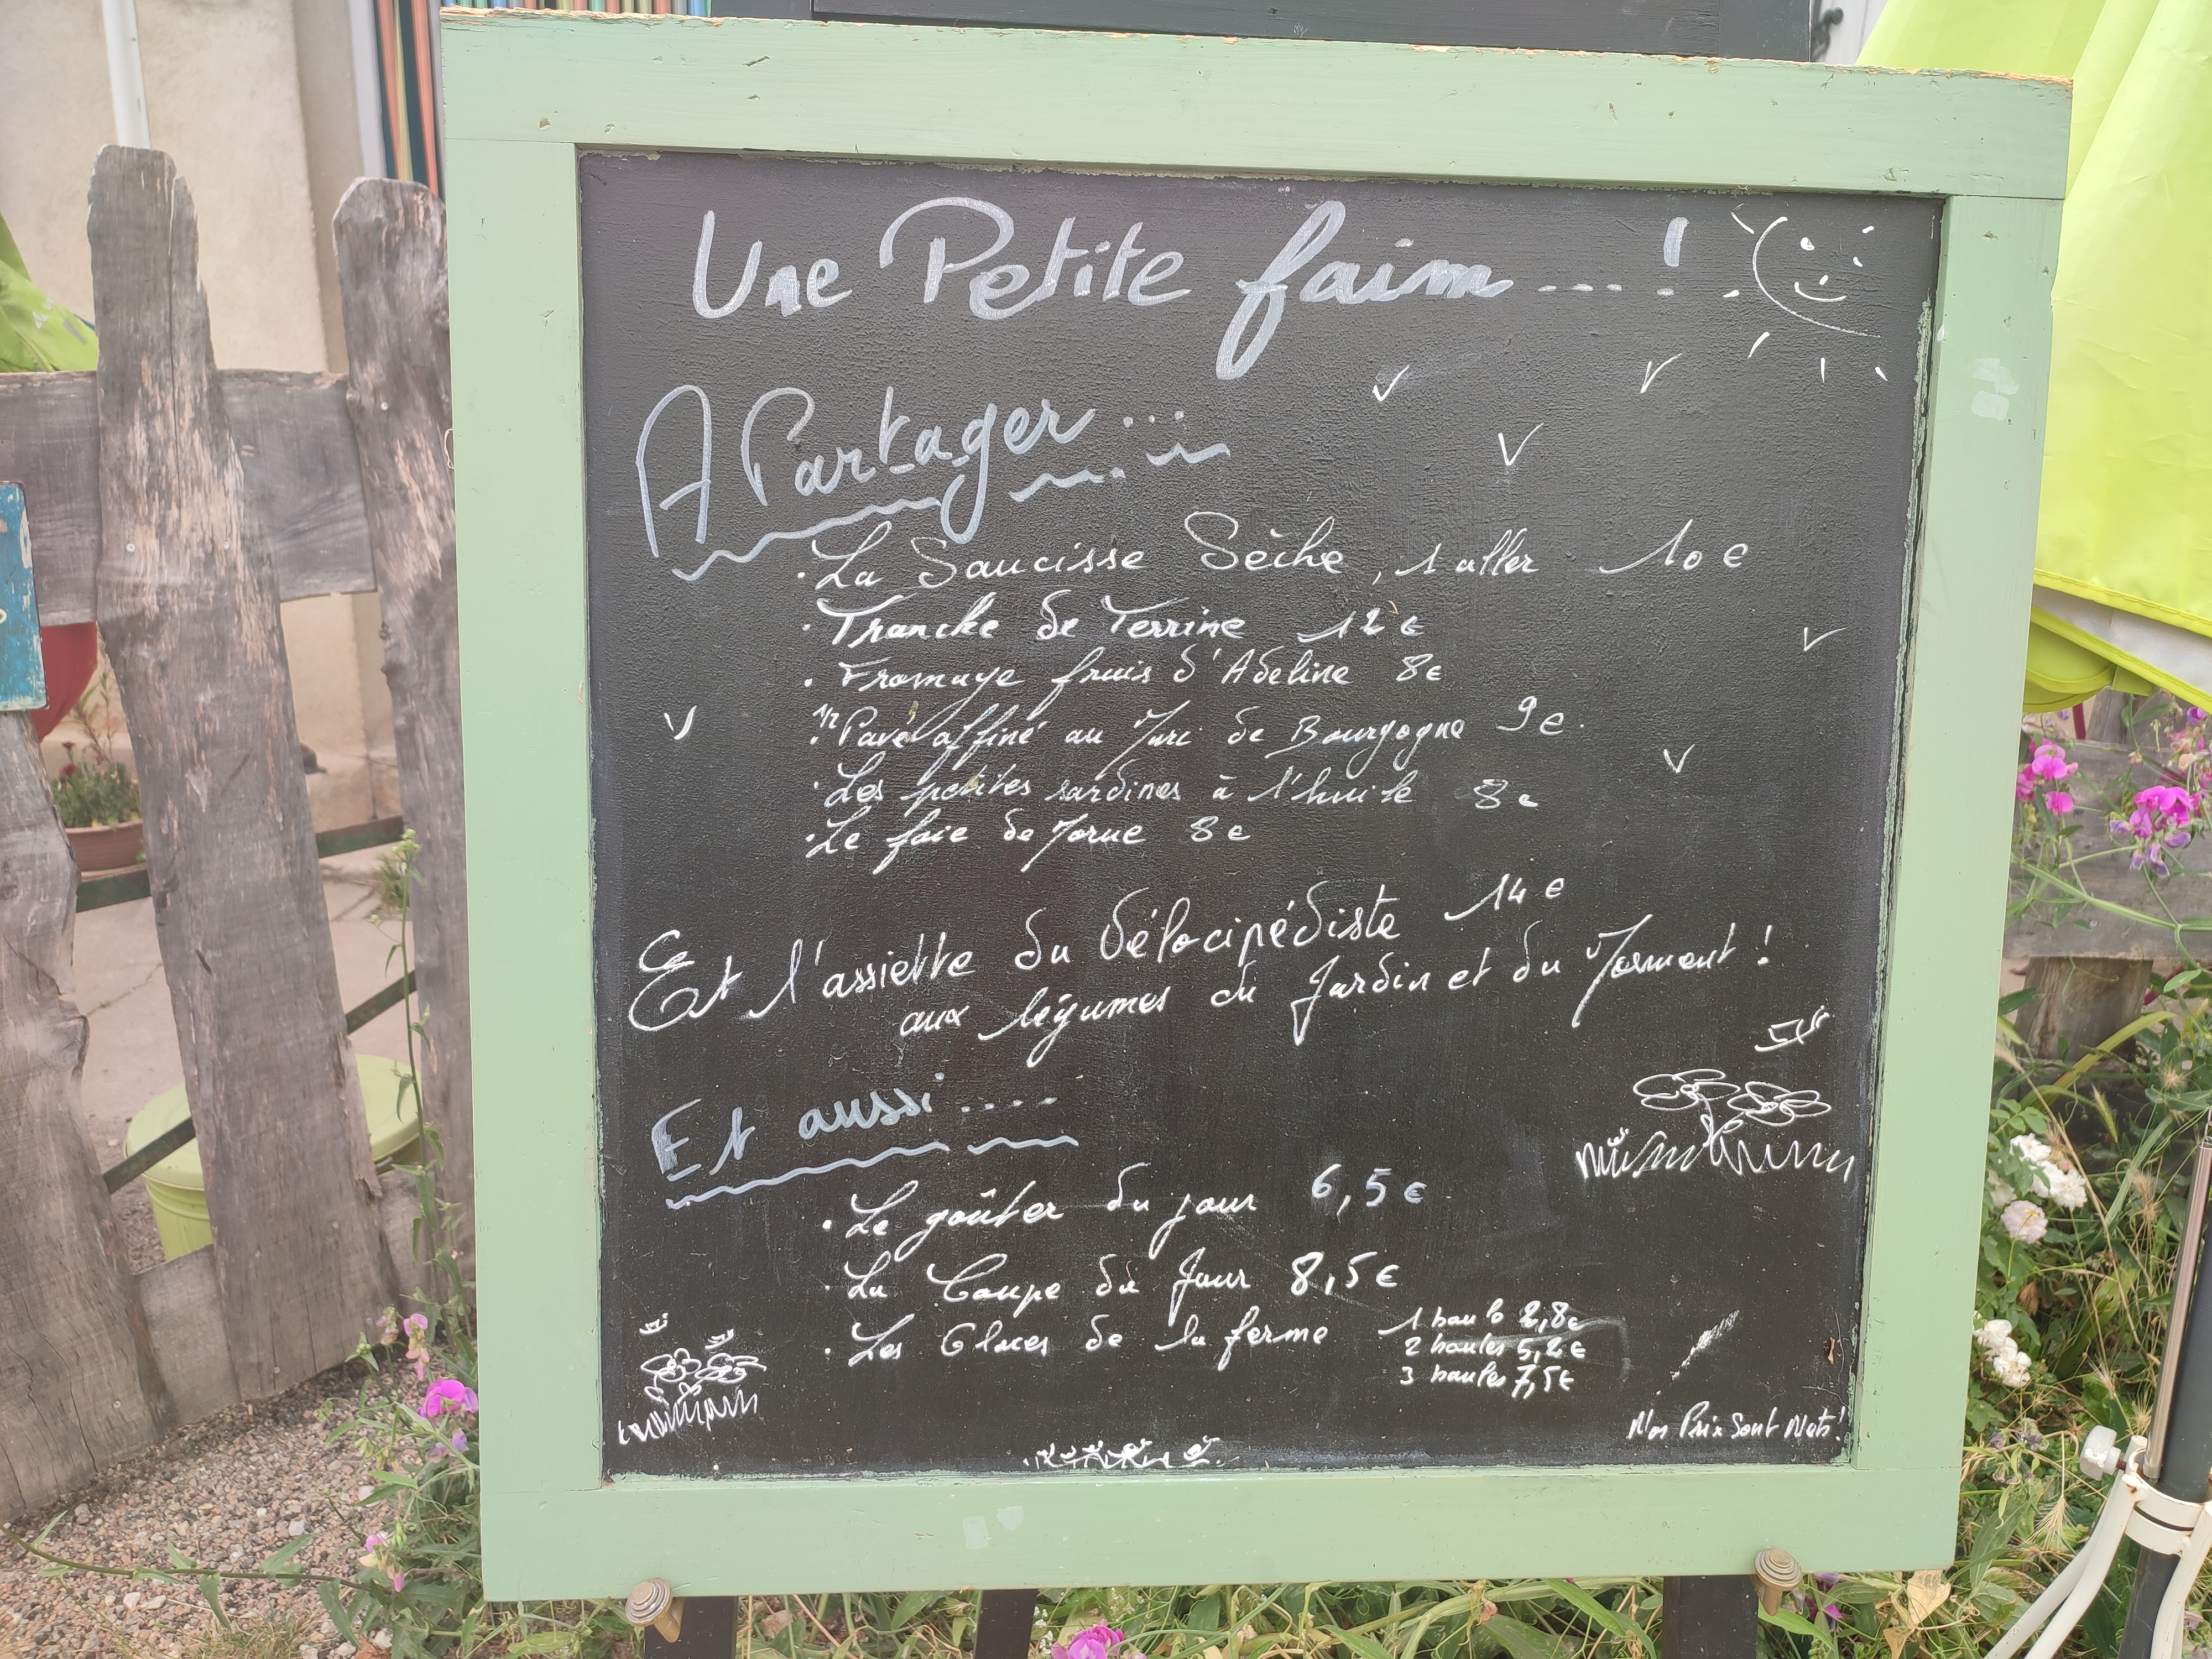 Une Petite faim ....!
A Partager ...
· La Saucisse Sèche, 1 aller 10 €
· Tranche de Terrine 12 €
· Fromage frais d'Adeline 8 €
· 1/2 Pavé affiné au Marc de Bourgogne 9 €.
· Les petites sardines à l'huile 8 €
· Le foie de Morue 8 €
Et l'assiette du Vélocipédiste 14 €
aux légumes du Jardin et du Morvan !
Et aussi ....
· Le goûter du jour 6,5 €
· La Coupe du Jour 8,5 €
· Les Glaces de la ferme 1 boule 2,8€
2 boules 5,2€
3 boules 7,5€
Nos Prix Sont Nets !